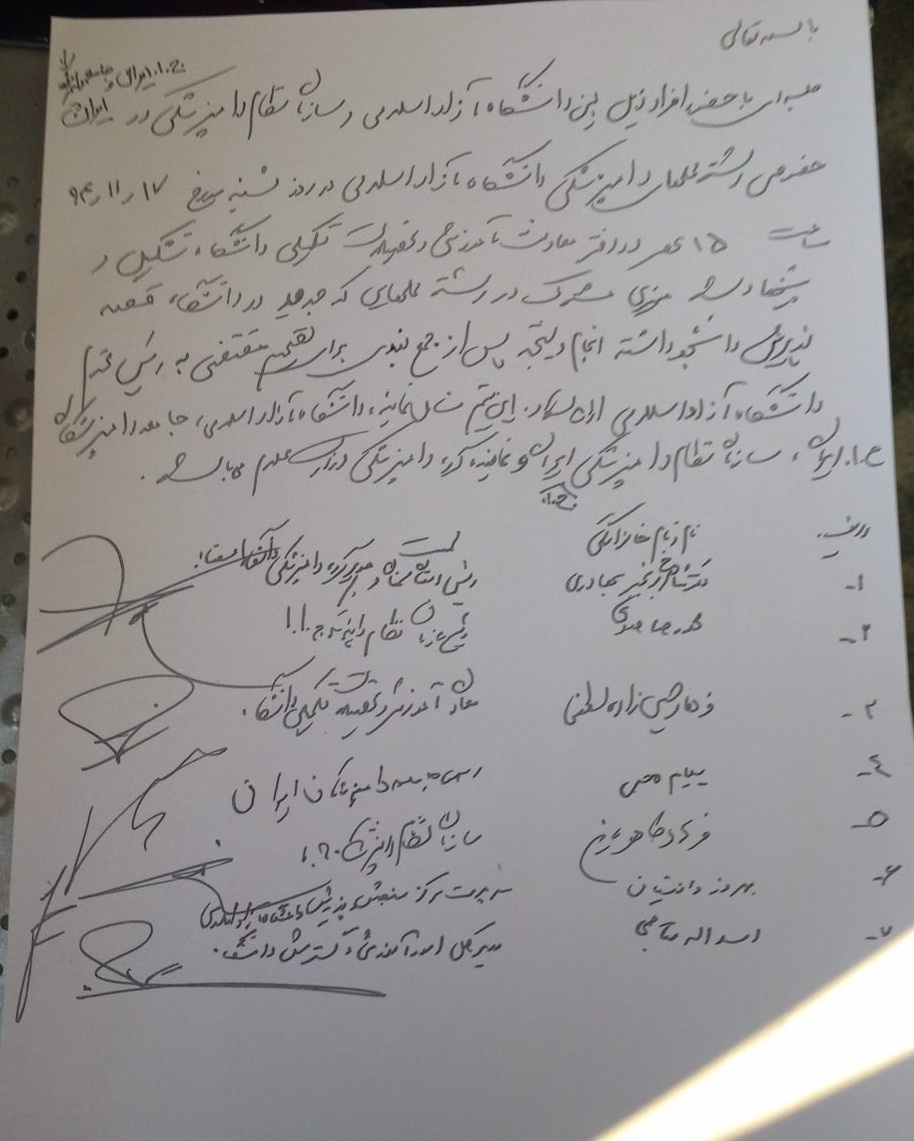 باسمه تعالی
ج.ا.ایران و جامعه
جلسه‌ای با حضور افراد ذیل بین دانشگاه آزاد اسلامی و سازمان نظام دامپزشکی در ایران
خصوص رشته محلهای دامپزشکی دانشگاه آزاد اسلامی در روز شنبه مورخ ۹۴/۱۱/۱۷
ساعت ۱۵ عصر در دفتر معاونت آموزشی و تحصیلات تکمیلی دانشگاه تشکیل و
پیشنهاد شد ممیزی مشترک در رشته محلهایی که در دانشگاه قصد
پذیرش دانشجو داشته انجام و نتیجه پس از جمع بندی برای تصمیم مقتضی به رئیس محترم
دانشگاه آزاد اسلامی ارسال گردد. این تیم شامل نماینده دانشگاه آزاد اسلامی، جامعه دامپزشکان
ج.ا.ایران، سازمان نظام دامپزشکی ایران و نماینده گروه دامپزشکی وزارت علوم می باشد.
ردیف نام و نام خانوادگی سمت
۱- دکتر رئیس دانشگاه و دامپزشکی
۲- محمدرضا رئیس سازمان نظام دامپزشکی ج.ا.ا
۳- فرهاد حسین زاده لطفی معاون آموزشی و تحصیلات تکمیلی دانشگاه
۴- پیام محبی رئیس جامعه دامپزشکان ایران
۵- سازمان نظام دامپزشکی ج.ا.ا
۶- بهروز دانشیان سرپرست مرکز سنجش و پذیرش دانشگاه آزاد اسلامی
۷- اسداله مدیرکل امور آموزشی و گسترش دانشگاه